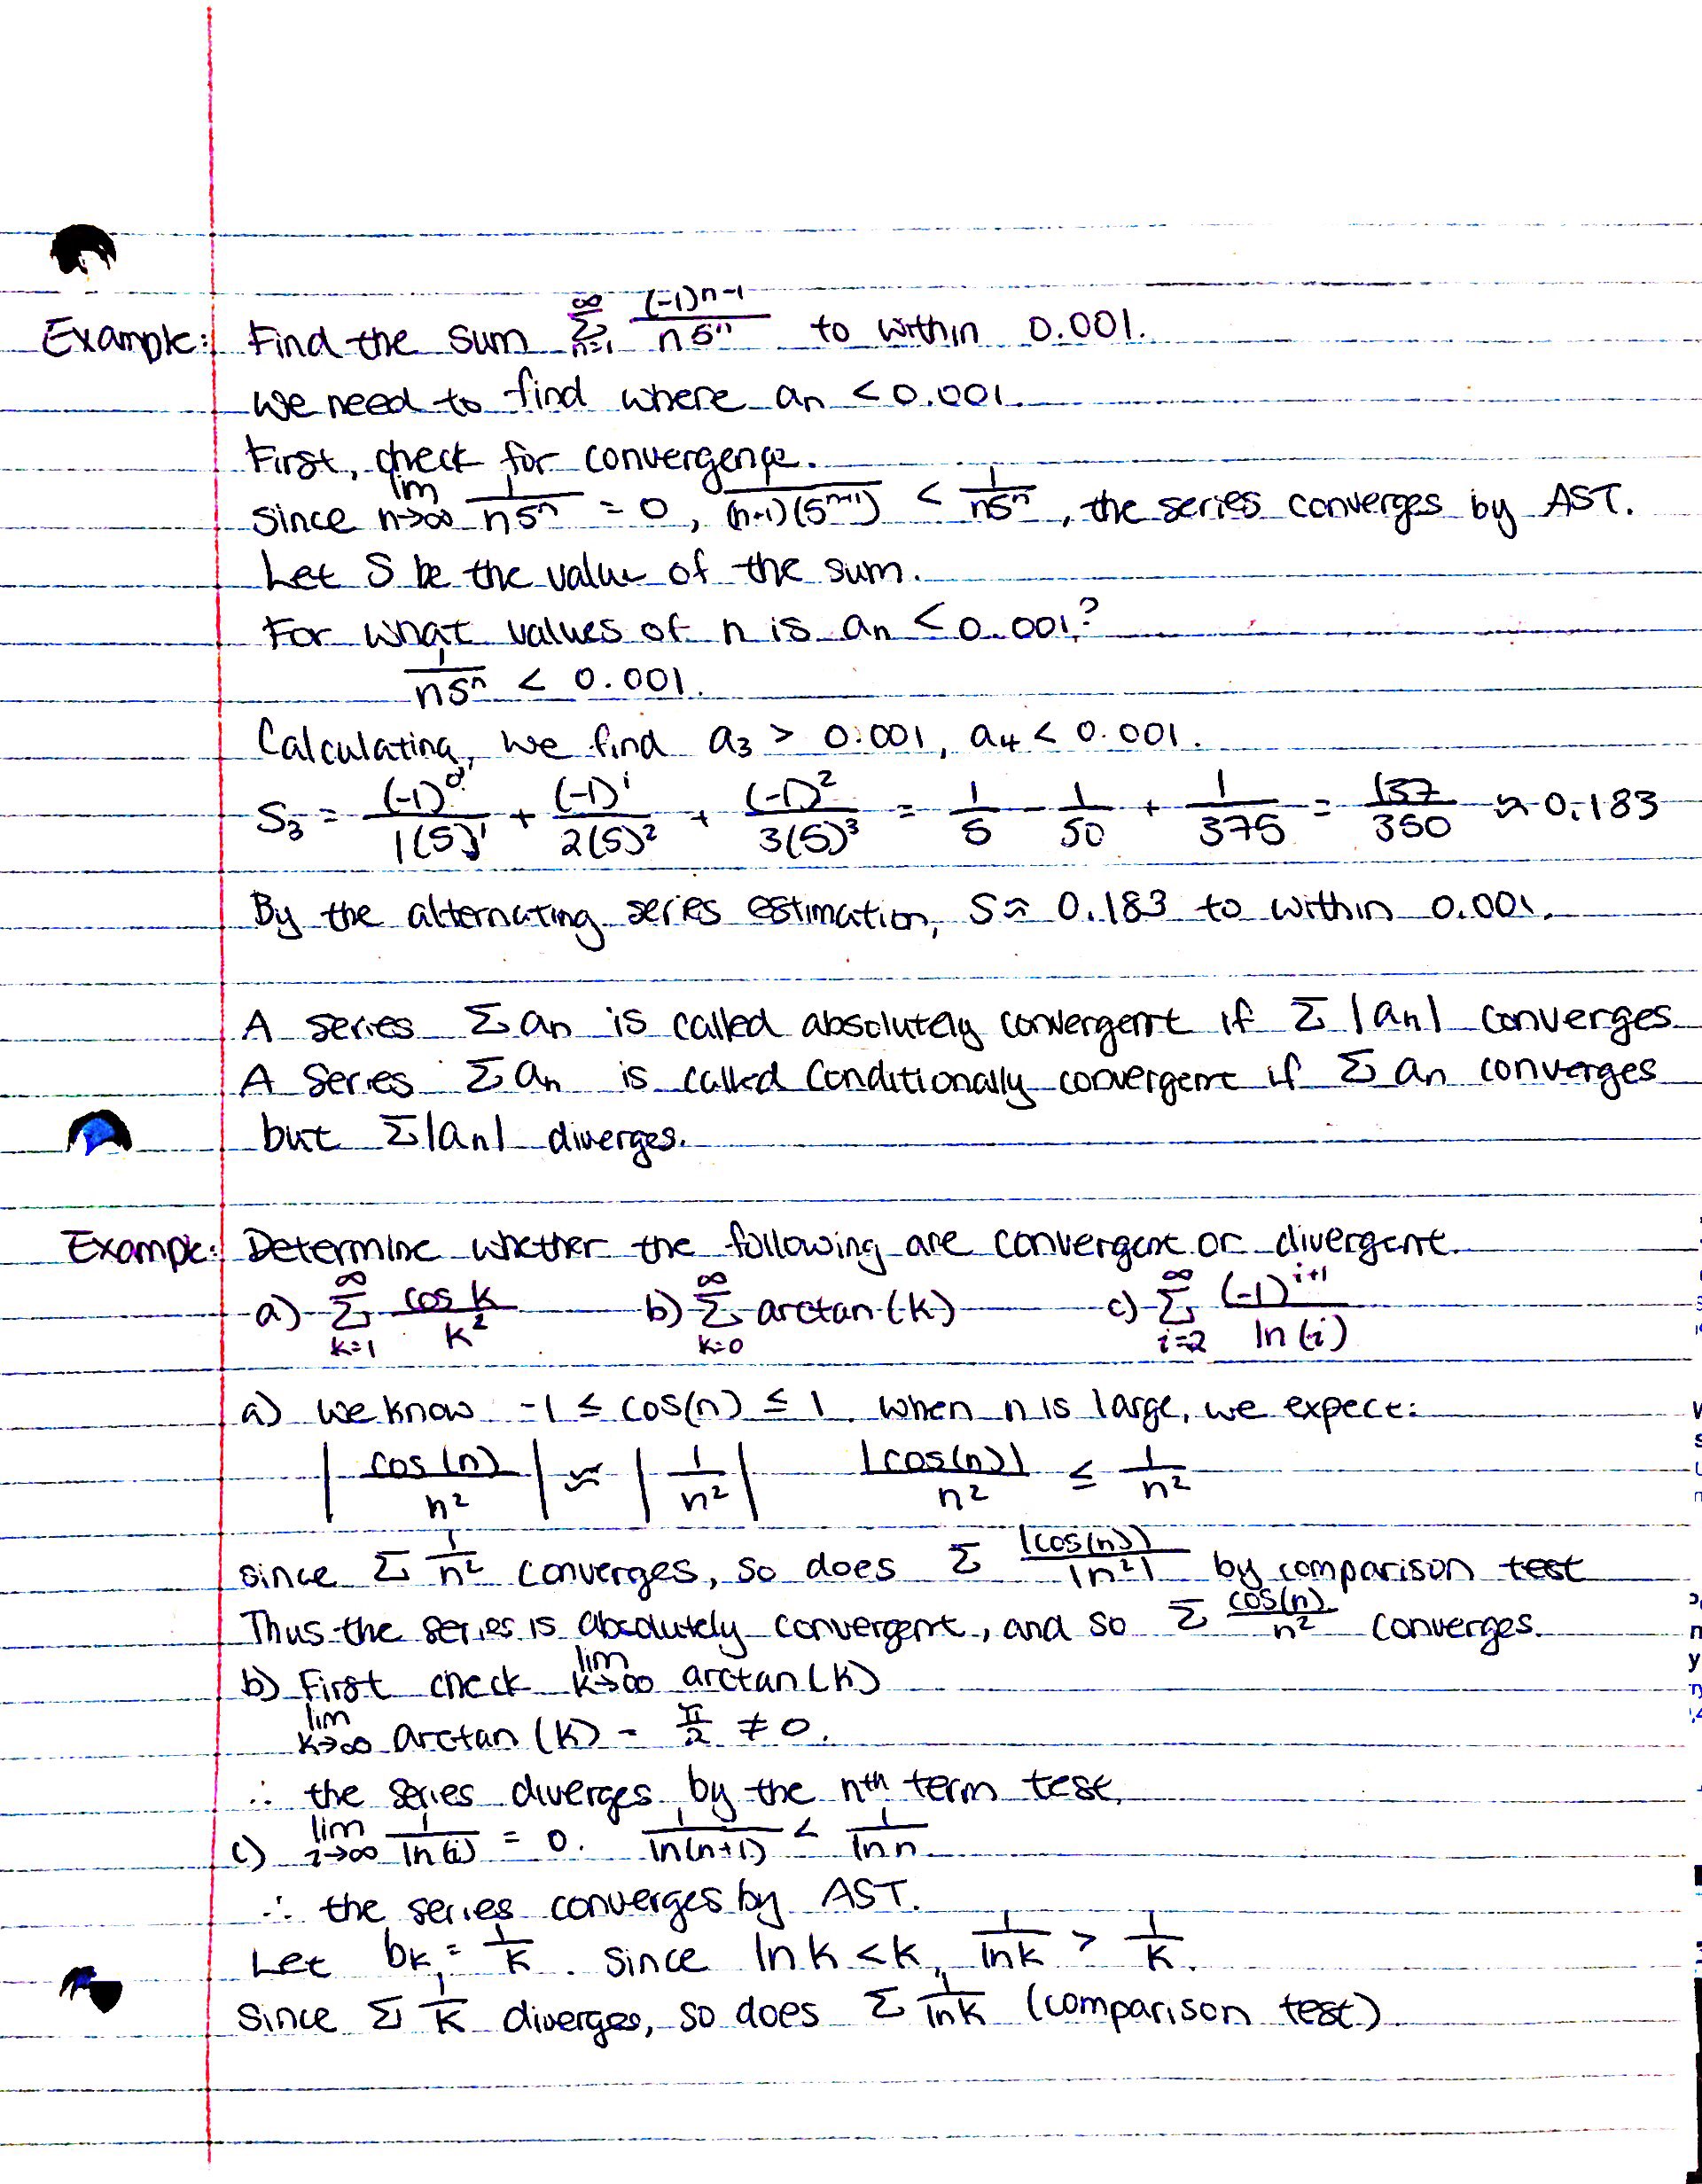 Example: Find the sum ∞ Σ n=1 (-1)^(n-1) / n5^n to within 0.001.
We need to find where an < 0.001.
First, check for convergence.
Since lim n→∞ 1/n5^n = 0, 1/(n+1)(5^(n+1)) < 1/n5^n, the series converges by AST.
Let S be the value of the sum.
For what values of n is an < 0.001?
1/n5^n < 0.001.
Calculating, we find a3 > 0.001, a4 < 0.001.
S3 = (-1)^0/1(5)^1 + (-1)^1/2(5)^2 + (-1)^2/3(5)^3 = 1/5 - 1/50 + 1/375 = 137/350 ≈ 0.183
By the alternating series estimation, S ≈ 0.183 to within 0.001.
A series Σ an is called absolutely convergent if Σ |an| converges
A series Σ an is called conditionally convergent if Σ an converges
but Σ|an| diverges.
Example: Determine whether the following are convergent or divergent.
a) ∞ Σ k=1 cos k / k² b) ∞ Σ k=0 arctan(k) c) ∞ Σ i=2 (-1)^(i+1) / ln(i)
a) we know -1 ≤ cos(n) ≤ 1. When n is large, we expect:
|cos(n)/n²| ≈ |1/n²| |cos(n)|/n² ≤ 1/n²
since Σ 1/n² converges, so does Σ |cos(n)|/|n²| by comparison test
Thus the series is absolutely convergent, and so Σ cos(n)/n² converges.
b) First check lim k→∞ arctan(k)
lim k→∞ arctan(k) = π/2 ≠ 0.
∴ the series diverges by the nth term test.
c) lim i→∞ 1/ln(i) = 0. 1/ln(n+1) < 1/ln n
∴ the series converges by AST.
Let bk = 1/k. Since ln k < k, 1/ln k > 1/k.
Since Σ 1/k diverges, so does Σ 1/ln k (comparison test).